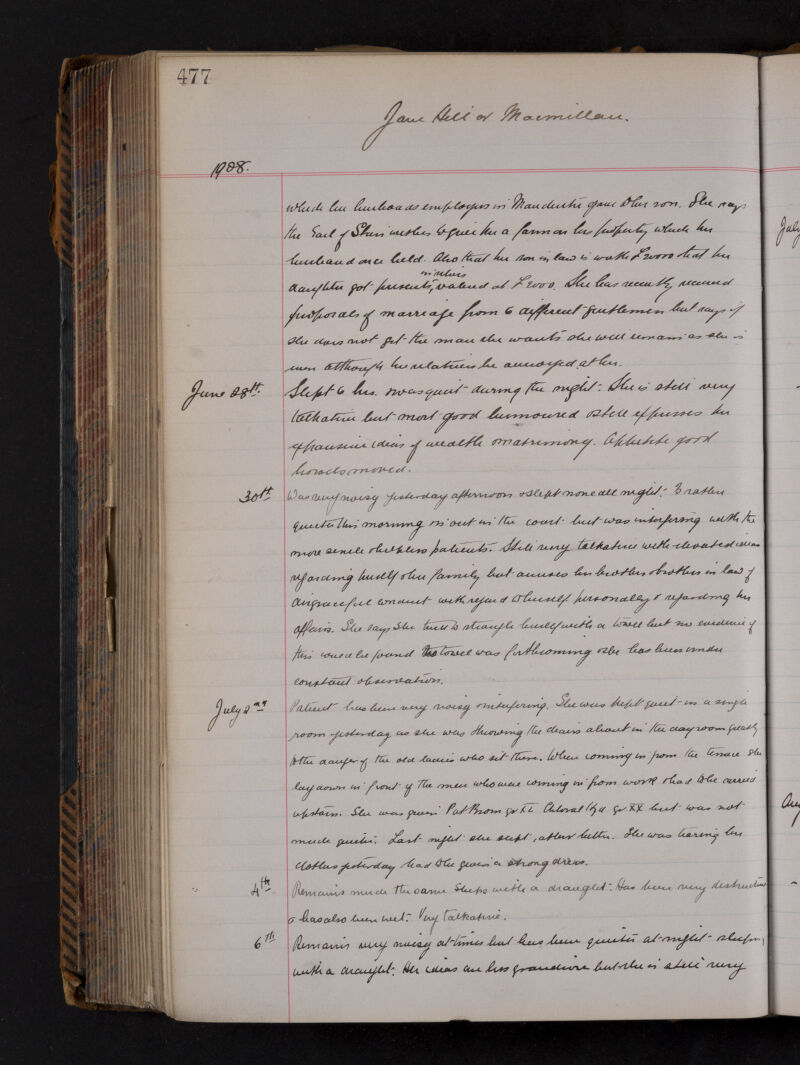 477
Jane Hill or Macmillan.
1908.
which her husbands employers in Manchester gave to her son. She says
the Earl of Stair wishes to give her a farm on his property which her
husband once held. Also that her son in law is worth £20000 & that her
in silver
daughter got presents, valued at £2000. She has recently received
proposals of marriage from 6 different gentlemen but says if
she does not get the man she wants she will remain as she is
even although her relatives be annoyed at her.
June 28th. Slept 6 hrs. & was quiet during the night. She is still very
talkative but most good humoured & still expresses her
expansive ideas of wealth & matrimony. Appetite good
bowels moved.
30th Was very noisy yesterday afternoon & slept none all night. Is rather
quieter this morning & is out in the court but was interfering with the
more senile & helpless patients. Still very talkative with elevated ideas
regarding herself & her family but accuses her brother & brother in law of
disgraceful conduct with regard to herself personally & regarding her
affairs. She says she tried to strangle herself with a towel but no evidence of
this could be found. No towel was forthcoming & she has been under
constant observation.
July 2nd Patient has been very noisy & interfering. She was kept quiet in a single
room yesterday as she was throwing the chairs about in the dayroom greatly
to the danger of the old ladies who sit there. When coming in from the terrace she
lay down in front of the men who were coming in from work & had to be carried
upstairs. She was given Pot Brom gr XL Chloral Hyd gr XX but was not
much quieter. Last night she slept rather better. She was tearing her
clothes yesterday & had to be given a strong dress.
4th Remains much the same. Sleeps with a draught. Has been very destructive
& has also been wet. Very talkative.
6th Remains very noisy at times but has been quieter at night – sleeping
with a draught. Her ideas are less grandiose but she is still very
July
Aug